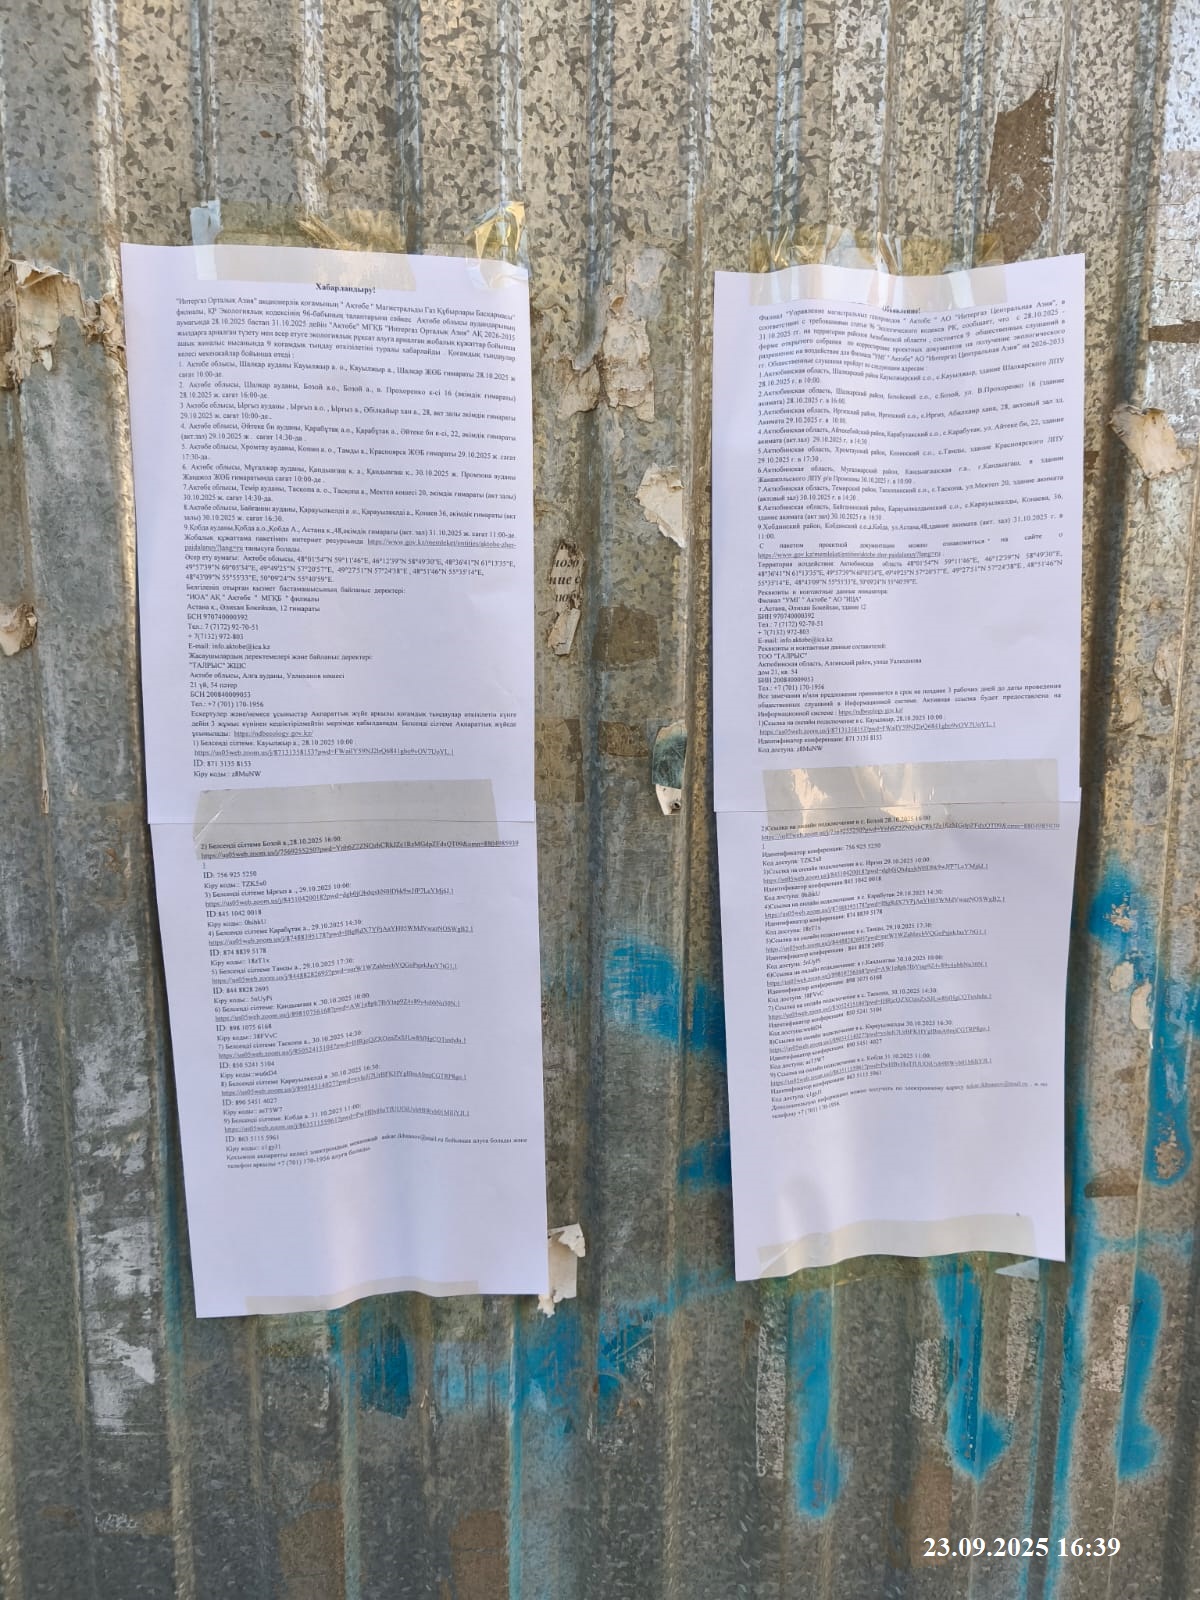 Хабарландыру!
"Интергаз Орталық Азия" акционерлік қоғамының " Ақтөбе " Магистральды Газ Құбырлары Басқармасы"
филиалы, ҚР Экологиялық кодексінің 96-бабының талаптарына сәйкес Ақтөбе облысы аудандарының
аумағында 28.10.2025 бастап 31.10.2025 дейін "Ақтөбе" МГҚБ "Интергаз Орталық Азия" АҚ 2026-2035
жылдарға арналған түзету мен әсер етуге экологиялық рұқсат алуға арналған жобалық құжаттар бойынша
ашық жиналыс нысанында 9 қоғамдық тыңдау өткізілетіні туралы хабарлайды . Қоғамдық тыңдаулар
келесі мекенжайлар бойынша өтеді :
1. Ақтөбе облысы, Шалқар ауданы Қауылжыр а. о., Қауылжыр а., Шалқар ЖӨБ ғимараты 28.10.2025 ж
сағат 10:00-де.
2. Ақтөбе облысы, Шалқар ауданы, Бозой а.о., Бозой а., в. Прохоренко к-сі 16 (әкімдік ғимараты)
28.10.2025 ж. сағат 16:00-де.
3 Ақтөбе облысы, Ырғыз ауданы , Ырғыз а.о., Ырғыз а., Әбілқайыр хан к., 28, акт залы әкімдік ғимараты
29.10.2025 ж. сағат 10:00-де..
4. Ақтөбе облысы, Әйтеке би ауданы, Қарабұтақ а.о., Қарабұтақ а., Әйтеке би к-сі, 22, әкімдік ғимараты
(акт.зал) 29.10.2025 ж . сағат 14:30-да .
5. Ақтөбе облысы, Хромтау ауданы, Көпин а.о., Тамды а., Красноярск ЖӨБ ғимараты 29.10.2025 ж. сағат
17:30-да .
6. Ақтөбе облысы, Мұғалжар ауданы, Қандыағаш қ. а., Қандыағаш қ., 30.10.2025 ж. Промзона ауданы
Жанажол ЖӨБ ғимаратында сағат 10:00-де .
7.Ақтөбе облысы, Темір ауданы, Тасқопа а. о., Тасқопа а., Мектеп көшесі 20, әкімдік ғимараты (акт залы)
30.10.2025 ж. сағат 14:30-да.
8.Ақтөбе облысы, Байғанин ауданы, Қарауылкелді а.о., Қарауылкелді а., Қонаев 36, әкімдік ғимараты (акт
залы) 30.10.2025 ж. сағат 16:30.
9.Қобда ауданы,Қобда а.о.,Қобда А., Астана к.,48,әкімдік ғимараты (акт зал) 31.10.2025 ж. сағат 11:00-де.
Жобалық құжаттама пакетімен интернет ресурсында https://www.gov.kz/memleket/entities/aktobe-zher-
paidalanu?lang=ru танысуға болады.
Әсер ету аумағы: Ақтөбе облысы, 48°01'54"N 59°11'46"E, 46°12'39"N 58°49'30"E, 48°36'41"N 61°13'35"E,
49°57'39"N 60°05'34"E, 49°49'25"N 57°20'57"E, 49°27'51"N 57°24'38"E , 48°51'46"N 55°35'14"E,
48°43'09"N 55°55'33"E, 50°09'24"N 55°40'59"E.
Белгіленіп отырған қызмет бастамашысының байланыс деректері:
"ИОА" АҚ " Ақтөбе " МГҚБ " филиалы
Астана қ., Әлихан Бокейхан, 12 ғимараты
БСН 970740000392
Тел.: 7 (7172) 92-70-51
+ 7(7132) 972-803
E-mail: info.aktobe@ica.kz
Жасаушылардың деректемелері және байланыс деректері:
"ТАЛРЫС" ЖШС
Ақтөбе облысы, Алға ауданы, Уалиханов көшесі
21 үй, 54 пәтер
БСН 200840009053
Тел.: +7 (701) 170-1956
Ескертулер және/немесе ұсыныстар Ақпараттық жүйе арқылы қоғамдық тыңдаулар өткізілетін күнге
дейін 3 жұмыс күнінен кешіктірілмейтін мерзімде қабылданады. Белсенді сілтеме Ақпараттық жүйеде
ұсынылады: https://ndbecology.gov.kz/
1) Белсенді сілтеме. Қауылжыр а., 28.10.2025 10:00 :
ID: 871 3135 8153
Кіру коды : z8MuNW
2) Белсенді сілтеме Бозой а.,28.10.2025 16:00:
ID: 756 925 5250
Кіру коды : TZK5s0
3) Белсенді сілтеме Ырғыз а ., 29.10.2025 10:00:
ID: 845 1042 0018
Кіру коды: 0hihkU
4) Белсенді сілтеме Қарабұтақ а., 29.10.2025 14:30:
ID: 874 8839 5178
Кіру коды: 18zT1x
5) Белсенді сілтеме Тамды а., 29.10.2025 17:30:
ID: 844 8828 2695
Кіру коды : 5nUyPi
6) Белсенді сілтеме. Қандыағаш қ. 30.10.2025 10:00:
ID: 898 1075 6168
Кіру коды: 38FVvC
7) Белсенді сілтеме Тасқопа а., 30.10.2025 14:30:
ID: 850 5241 5104
8) Белсенді сілтеме, Қарауылкелді а. 30.10.2025 16:30:
ID: 890 5451 4027
Кіру коды: ac75W7
9) Белсенді сілтеме. Қобда а. 31.10.2025 11:00:
ID: 863 5115 5961
Кіру коды: z1gyJ1
телефон арқылы +7 (701) 170-1956 алуға болады.
Объявление!
Филиал "Управление магистральных газопроводов " Актобе " АО "Интергаз Центральная Азия", в
соответствии с требованиями статьи 96 Экологического кодекса РК, сообщает, что с 28.10.2025 -
31.10.2025 гг. на территории районов Актюбинской области , состоятся 9 общественных слушаний в
форме открытого собрания по корректировке проектных документов на получение экологического
разрешение на воздействия для филиала "УМГ " Актобе" АО "Интергаз Центральная Азия" на 2026-2035
гг. Общественные слушания пройдут по следующим адресам :
1.Актюбинская область, Шалкарский район Кауылжырский с.о., с.Кауылжыр, здание Шалкарского ЛПУ
28.10.2025 г. в 10:00.
2.Актюбинская область, Шалкарский район, Бозойский с.о., с.Бозой, ул. В.Прохоренко 16 (здание
акимата) 28.10.2025 г. в 16:00.
3.Актюбинская область, Иргизский район, Иргизский с.о., с.Иргиз, Абилхаир хана, 28, актовый зал зд.
Акимата 29.10.2025 г. в 10:00.
4.Актюбинская область, Айтекебийский район, Карабутакский с.о., с.Карабутак, ул. Айтеке би, 22, здание
акимата (акт.зал) 29.10.2025 г. в 14:30 .
5.Актюбинская область, Хромтауский район, Копинский с.о., с.Танды, здание Красноярского ЛПУ
29.10.2025 г. в 17:30 .
6.Актюбинская область, Мугалжарский район, Кандыагашская г.а., г.Кандыагаш, в здании
Жанажольского ЛПУ р/н Промзоны 30.10.2025 г. в 10:00 .
7.Актюбинская область, Темирский район, Таскопинский с.о., с.Таскопа, ул.Мектеп 20, здание акимата
(актовый зал) 30.10.2025 г. в 14:30 .
8.Актюбинская область, Байганинский район, Карауылкелдинский с.о., с.Карауылкелды, Конаева, 36,
здание акимата (акт зал) 30.10.2025 г.в 16:30.
9.Хобдинский район, Кобдинский с.о.,с.Кобда, ул.Астана,48,здание акимата (акт. зал) 31.10.2025 г. в
11:00.
С пакетом проектной документации можно ознакомиться на сайте о
https://www.gov.kz/memleket/entities/aktobe-zher-paidalanu?lang=ru .
Территория воздействия: Актюбинская область 48°01'54"N 59°11'46"E, 46°12'39"N 58°49'30"E,
48°36'41"N 61°13'35"E, 49°57'39"N 60°05'34"E, 49°49'25"N 57°20'57"E, 49°27'51"N 57°24'38"E , 48°51'46"N
55°35'14"E, 48°43'09"N 55°55'33"E, 50°09'24"N 55°40'59"E.
Реквизиты и контактные данные инициатора:
Филиал "УМГ " Актобе " АО "ИЦА"
г.Астана, Әлихан Бокейхан, здание 12
БИН 970740000392
Тел.: 7 (7172) 92-70-51
+ 7(7132) 972-803
E-mail: info.aktobe@ica.kz
Реквизиты и контактные данные составителей:
ТОО "ТАЛРЫС"
Актюбинская область, Алгинский район, улица Уалиханова
дом 21, кв. 54
БИН 200840009053
Тел.: +7 (701) 170-1956
Все замечания и/или предложения принимаются в срок не позднее 3 рабочих дней до даты проведения
общественных слушаний в Информационной системе. Активная ссылка будет предоставлена на
Информационной системе : https://ndbecology.gov.kz/
1)Ссылка на онлайн подключение в с. Кауылжыр, 28.10.2025 10:00 :
Идентификатор конференции: 871 3135 8153
Код доступа: z8MuNW
2)Ссылка на онлайн подключение в с. Бозой 28.10.2025 16:00:
Идентификатор конференции: 756 925 5250
Код доступа: TZK5s0
3)Ссылка на онлайн подключение в с. Иргиз 29.10.2025 10:00:
Идентификатор конференции: 845 1042 0018
Код доступа: 0hihkU
4)Ссылка на онлайн подключение в с. Карабутак 29.10.2025 14:30:
Идентификатор конференции: 874 8839 5178
Код доступа: 18zT1x
5)Ссылка на онлайн подключение в с. Танды, 29.10.2025 17:30:
Идентификатор конференции: 844 8828 2695
Код доступа: 5nUyPi
6)Ссылка на онлайн подключение: в г.Кандыагаш 30.10.2025 10:00:
Идентификатор конференции: 898 1075 6168
Код доступа: 38FVvC
7) Ссылка на онлайн подключение в с. Таскопа, 30.10.2025 14:30:
Идентификатор конференции: 850 5241 5104
8)Ссылка на онлайн подключение в с. Карауылкелды 30.10.2025 16:30:
Идентификатор конференции: 890 5451 4027
Код доступа: ac75W7
9) Ссылка на онлайн подключение в с. Кобда 31.10.2025 11:00:
Идентификатор конференции: 863 5115 5961
Код доступа: z1gyJ1
Дополнительную информацию можно получить по электронному адресу и по
телефону +7 (701) 170-1956.
23.09.2025 16:39